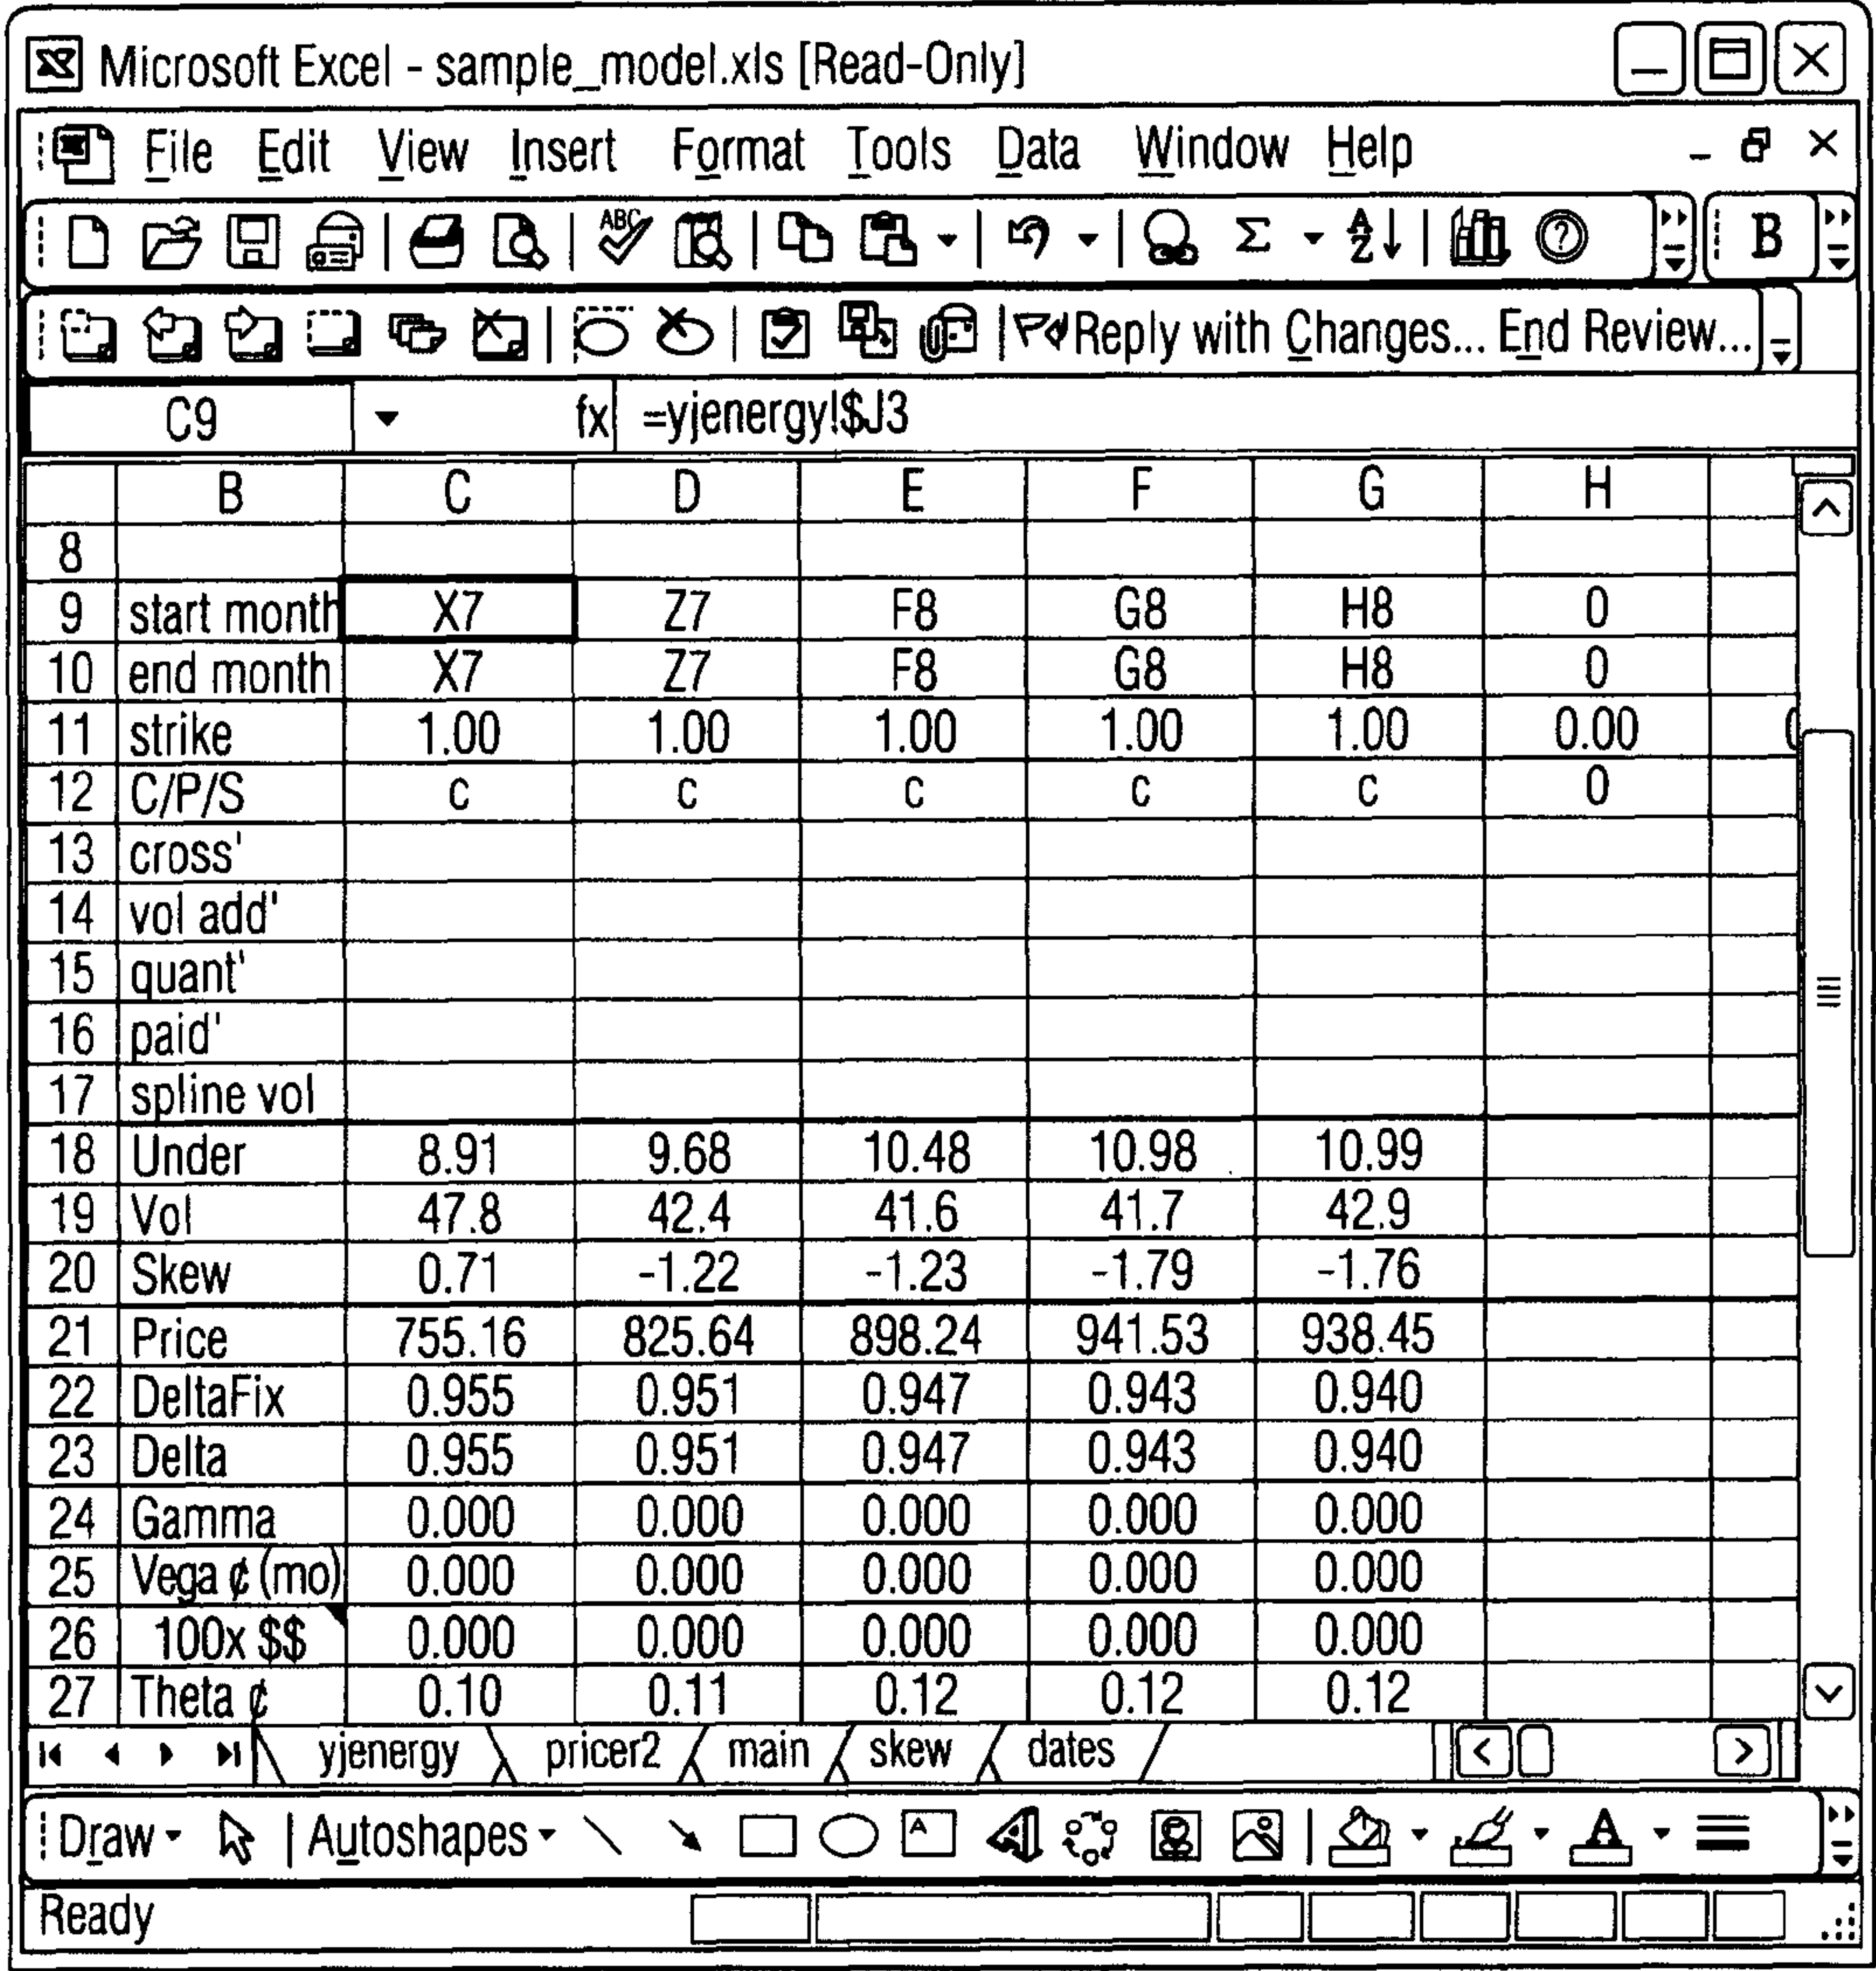 Microsoft Excel - sample_model.xls [Read-Only]
File Edit View Insert Format Tools Data Window Help
ABC Σ A Z ? B
Reply with Changes... End Review...
C9 fx =yjenergy!$J3
B C D E F G H
8
9 start month X7 Z7 F8 G8 H8 0
10 end month X7 Z7 F8 G8 H8 0
11 strike 1.00 1.00 1.00 1.00 1.00 0.00
12 C/P/S c c c c c 0
13 cross'
14 vol add'
15 quant'
16 paid'
17 spline vol
18 Under 8.91 9.68 10.48 10.98 10.99
19 Vol 47.8 42.4 41.6 41.7 42.9
20 Skew 0.71 -1.22 -1.23 -1.79 -1.76
21 Price 755.16 825.64 898.24 941.53 938.45
22 DeltaFix 0.955 0.951 0.947 0.943 0.940
23 Delta 0.955 0.951 0.947 0.943 0.940
24 Gamma 0.000 0.000 0.000 0.000 0.000
25 Vega ¢ (mo) 0.000 0.000 0.000 0.000 0.000
26 100x $$ 0.000 0.000 0.000 0.000 0.000
27 Theta ¢ 0.10 0.11 0.12 0.12 0.12
yjenergy pricer2 main skew dates
Draw Autoshapes A A A
Ready